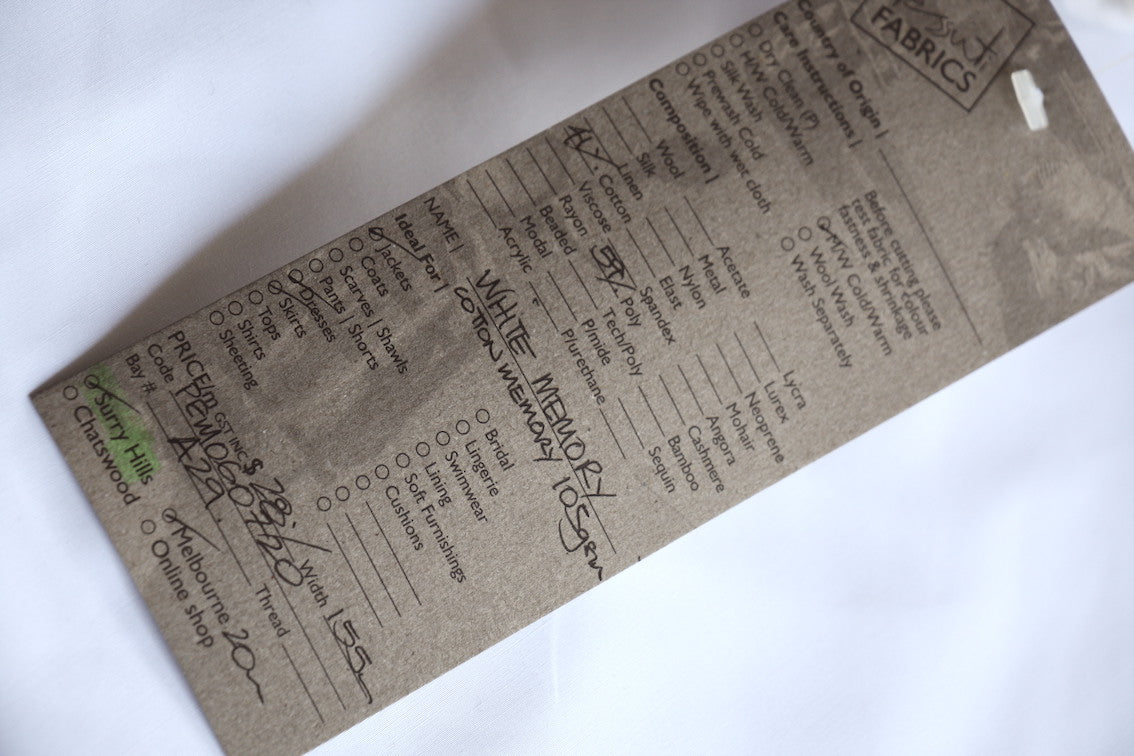 FABRICS
Country of Origin |
Care Instructions |
Before cutting please
test fabric for colour
fastness & shrinkage
Dry Clean (P)
H/W Cold/Warm
Silk Wash
Prewash Cold
Wipe with wet cloth
M/W Cold/Warm
Wool Wash
Wash Separately
Composition |
Wool
Silk
Linen
Cotton
Viscose
Rayon
Beaded
Modal
Acrylic
Acetate
Metal
Nylon
Elast
Spandex
Poly
Tech/Poly
P/mide
P/urethane
Lycra
Lurex
Neoprene
Mohair
Angora
Cashmere
Bamboo
Sequin
NAME | WHITE MEMORY
COTTON MEMORY 105gsm
Ideal For |
Jackets
Coats
Scarves | Shawls
Pants | Shorts
Dresses
Skirts
Tops
Shirts
Sheeting
Bridal
Lingerie
Swimwear
Lining
Soft Furnishings
Cushions
PRICE/m GST INC $ 29./ Width 155
Code Thread
Bay # A29
Surry Hills
Chatswood
Melbourne 20m
Online shop